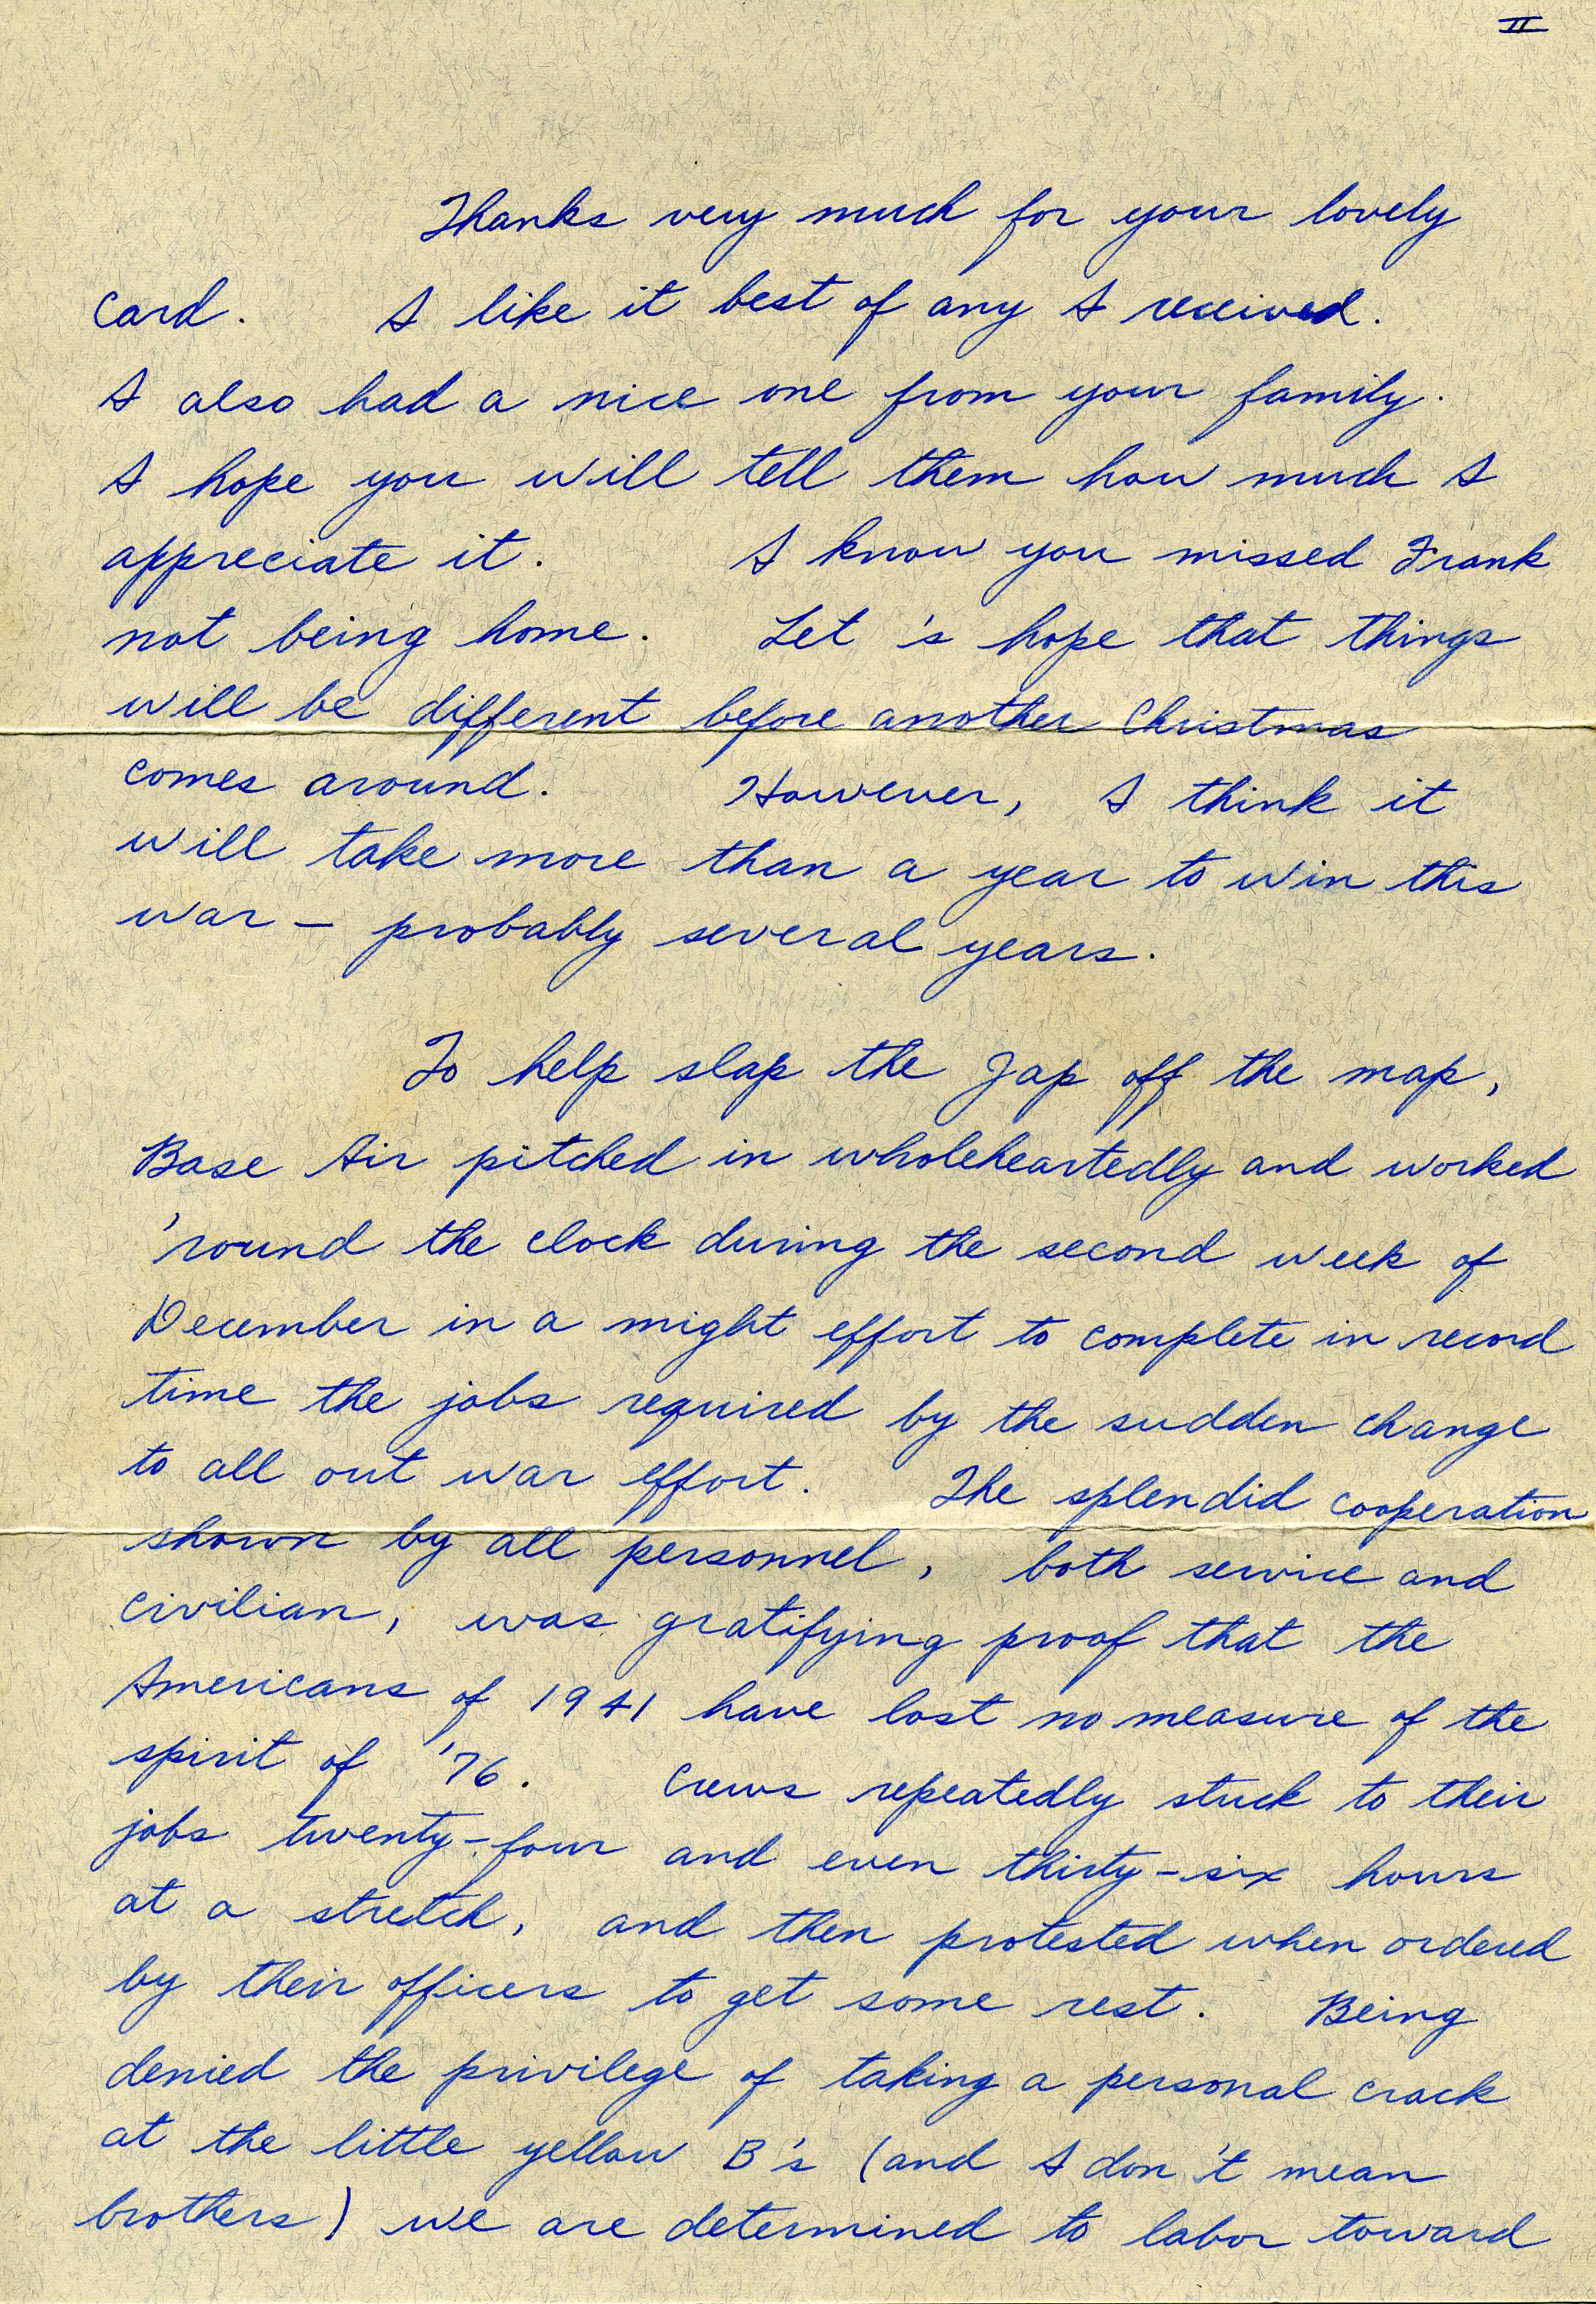 II
Thanks very much for your lovely
card. I like it best of any I received.
I also had a nice one from your family.
I hope you will tell them how much I
appreciate it. I know you missed Frank
not being home. Let 's hope that things
will be different before another Christmas
comes around. However, I think it
will take more than a year to win this
war - probably several years.
To help slap the Jap off the map,
Base Air pitched in wholeheartedly and worked
'round the clock during the second week of
December in a might effort to complete in record
time the jobs required by the sudden change
to all out war effort. The splendid cooperation
shown by all personnel, both service and
civilian, was gratifying proof that the
Americans of 1941 have lost no measure of the
spirit of '76. Crews repeatedly stuck to their
jobs twenty-four and even thirty-six hours
at a stretch, and then protested when ordered
by their officers to get some rest. Being
denied the privilege of taking a personal crack
at the little yellow B's (and I don't mean
brothers) we are determined to labor toward